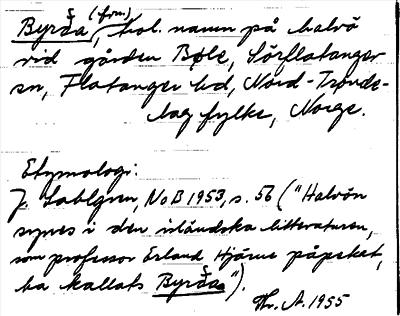 Byrða (frm.), hol. namn på halvö
vid gården Bøle, Sörflatanger
sn, Flatanger hd, Nord-Trønde-
lag fylke, Norge.
Etymologi:
J. Sahlgren, NoB 1953, s. 56 ("Halvön
synes i den isländska litteraturen,
som professor Erland Hjärne påpekat,
ha kallats Byrða").
Thr. A. 1955